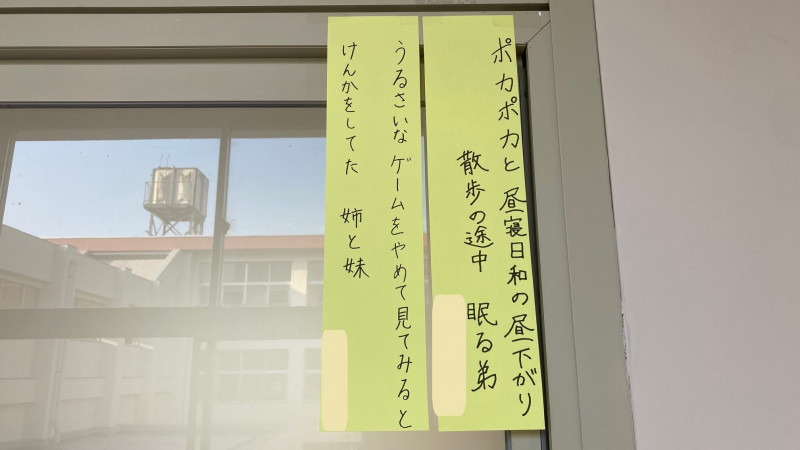 ポカポカと 昼寝日和の昼下がり
散歩の途中 眠る弟
うるさいな ゲームをやめて見てみると
けんかをしてた 姉と妹